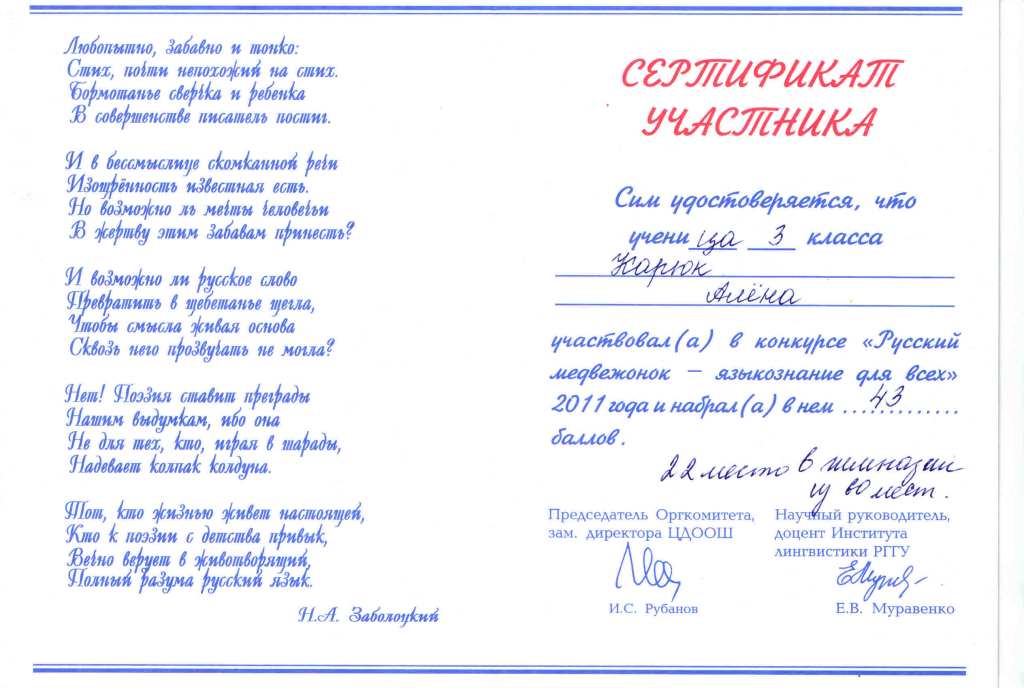 Любопытно, забавно и тонко:
Стих, почти непохожий на стих.
Бормотанье сверчка и ребенка
В совершенстве писатель постиг.
И в бессмыслице скомканной речи
Изощрённость известная есть.
Но возможно ль мечты человечьи
В жертву этим забавам принесть?
И возможно ли русское слово
Превратить в щебетанье щегла,
Чтобы смысла живая основа
Сквозь него прозвучать не могла?
Нет! Поэзия ставит преграды
Нашим выдумкам, ибо она
Не для тех, кто, играя в шарады,
Надевает колпак колдуна.
Тот, кто жизнью живет настоящей,
Кто к поэзии с детства привык,
Вечно верует в животворящий,
Полный разума русский язык.
Н.А. Заболоцкий
СЕРТИФИКАТ
УЧАСТНИКА
Сим удостоверяется, что
учени ца 3 класса
Карюк
Алёна
участвовал(а) в конкурсе «Русский
медвежонок – языкознание для всех»
2011 года и набрал(а) в нем ...43.........
баллов.
22 место в гимназии
из мест.
Председатель Оргкомитета,
зам. директора ЦДООШ
И.С. Рубанов
Научный руководитель,
доцент Института
лингвистики РГГУ
Е.В. Муравенко